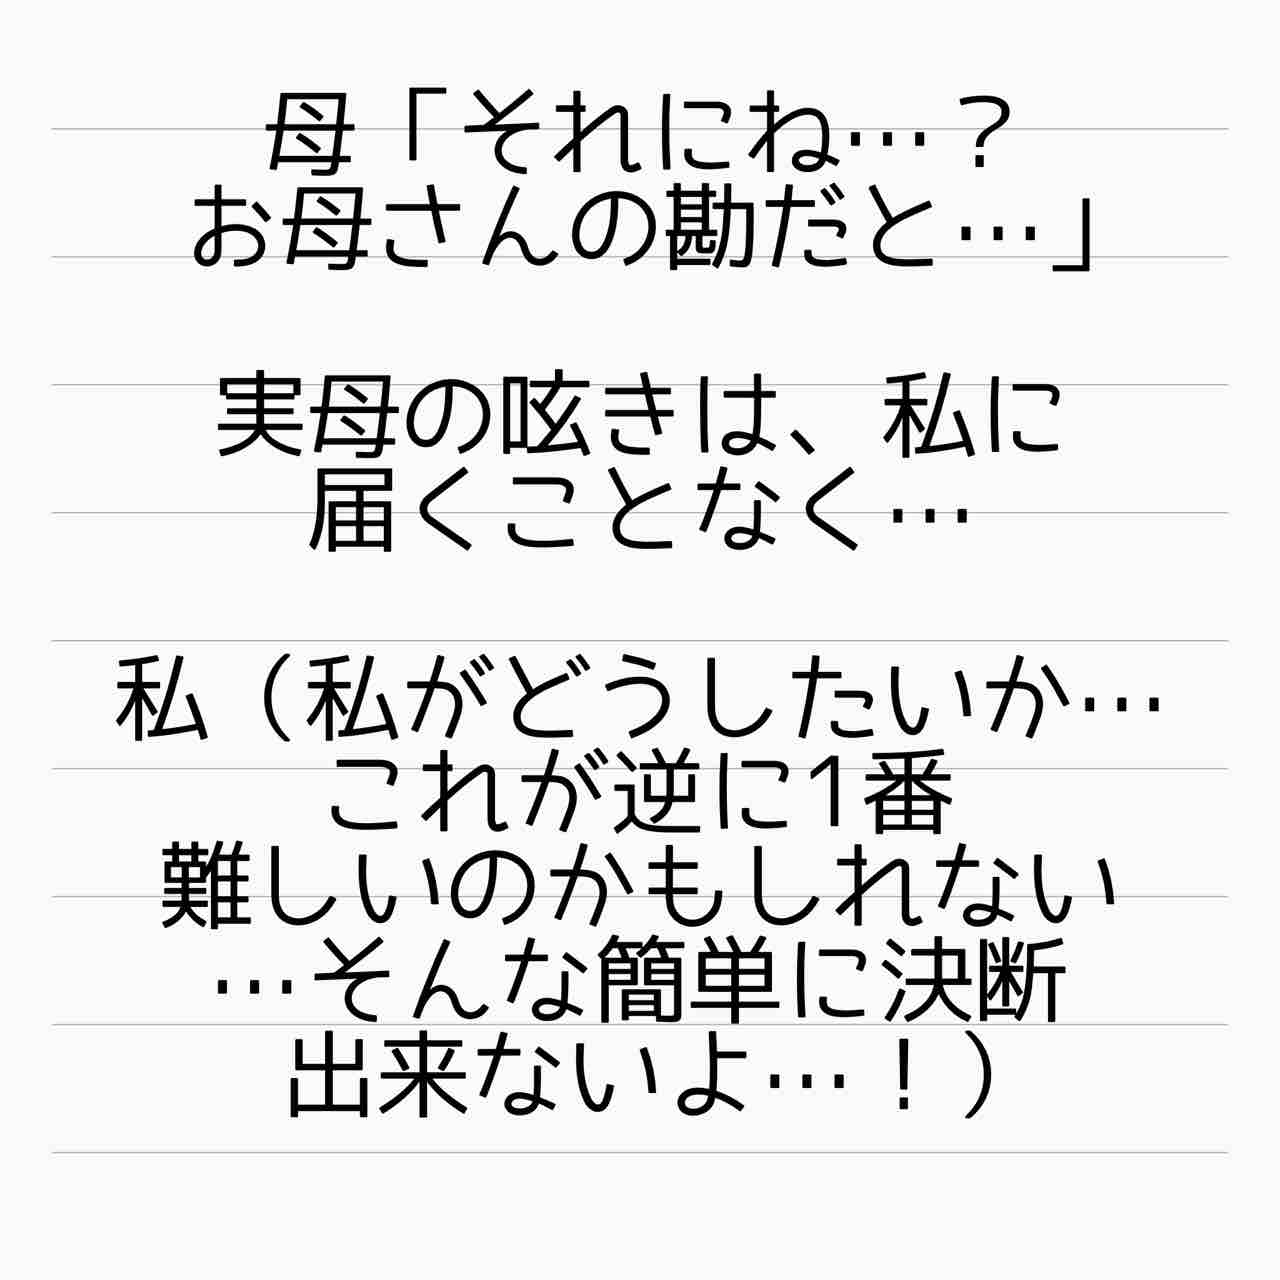 母「それにね…？
お母さんの勘だと…」
実母の呟きは、私に
届くことなく…
私（私がどうしたいか…
これが逆に1番
難しいのかもしれない
…そんな簡単に決断
出来ないよ…！）